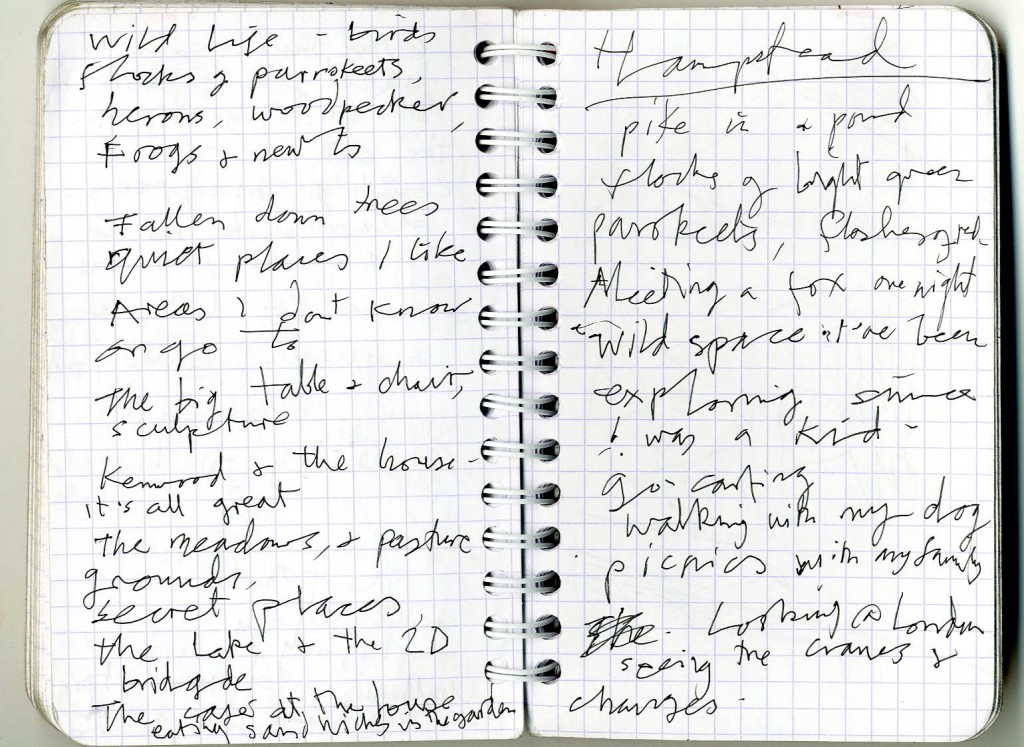 Wild Life - birds
flocks of parrokeets,
herons, woodpecker,
Frogs & newts
Fallen down trees
quiet places I like
Areas I don't know
or go to
The big table & chair,
sculpture
Kenwood & the house -
it's all great
The meadows, & pasture
grounds,
secret places,
the Lake & the 2D
bridgde
The cafes at the house
eating sandwiches in the garden
Hampstead
pike in a pond
flocks of bright green
parrokeets, flashes of red.
Meeting a fox one night
Wild space I've been
exploring since
I was a kid -
go-carting
walking with my dog
picnics with my family
Looking @ London
seeing the cranes &
changes -